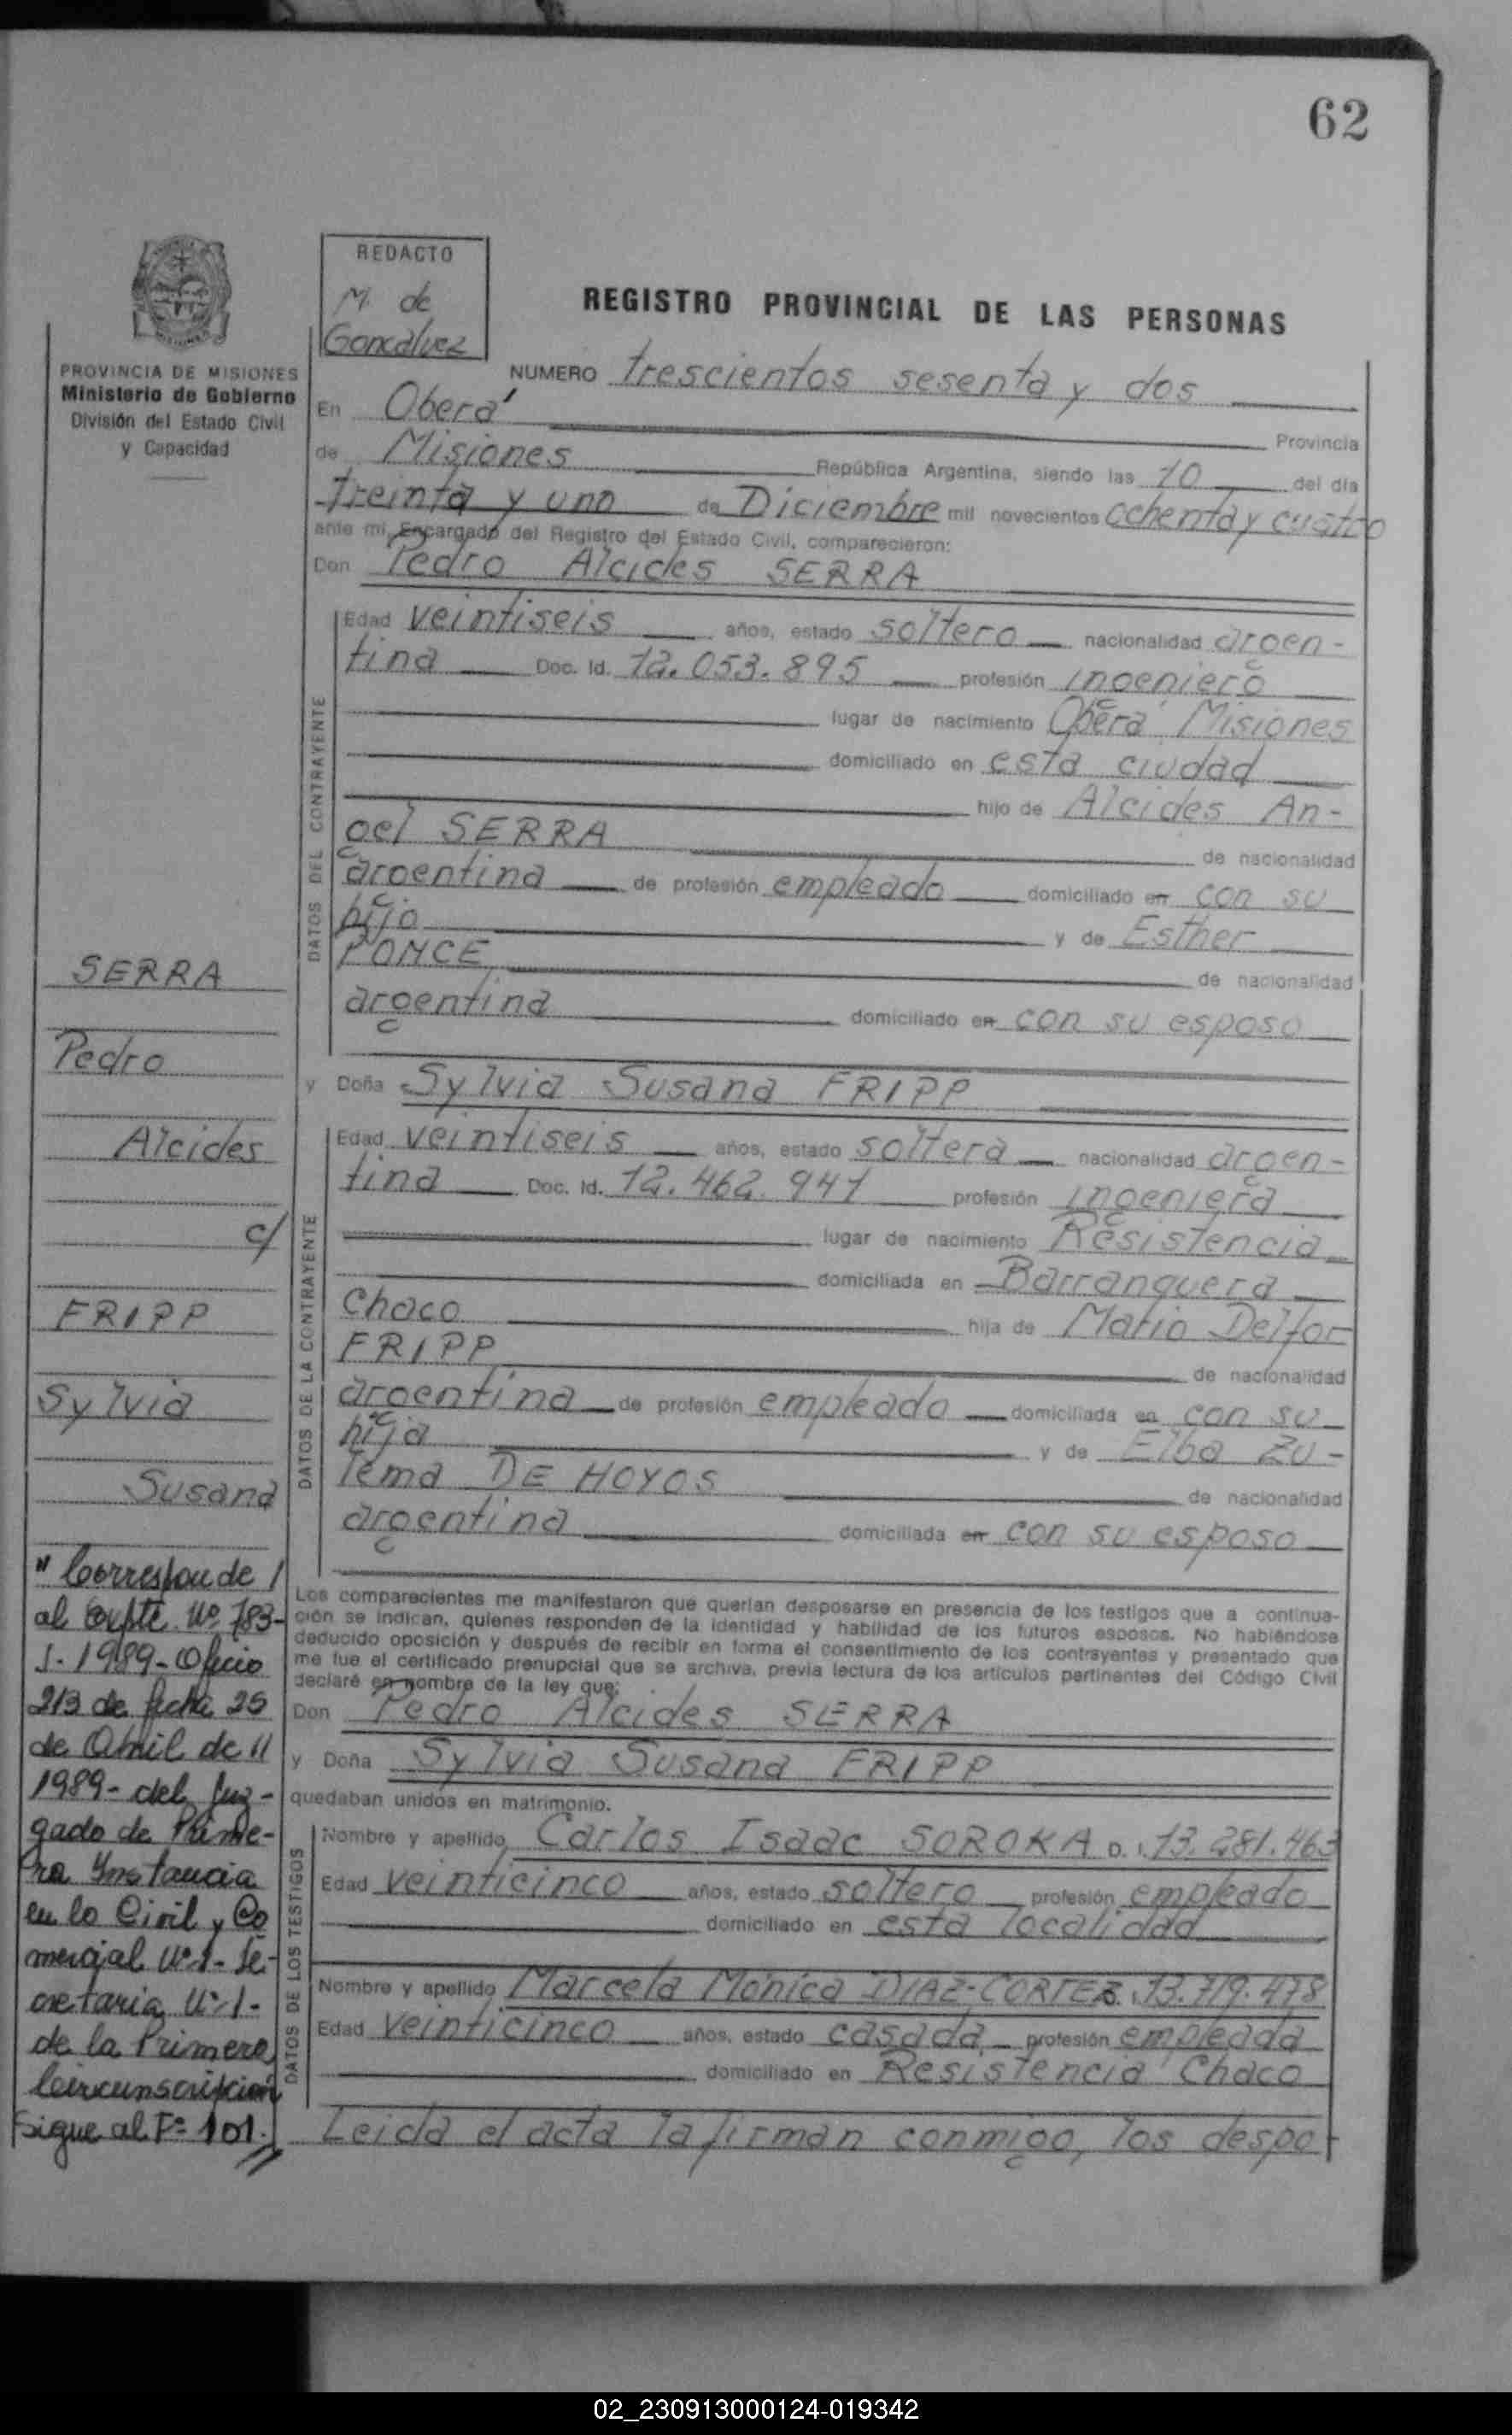 62
REDACTO
M. de
Goncalvez
REGISTRO PROVINCIAL DE LAS PERSONAS
PROVINCIA DE MISIONES
Ministerio de Gobierno
División del Estado Civil
y Capacidad
NUMERO trescientos sesenta y dos
En Oberá Provincia
de Misiones República Argentina, siendo las 10 del día
treinta y uno de Diciembre mil novecientos ochenta y cuatro
ante mí, Encargado del Registro del Estado Civil, comparecieron:
Don Pedro Alcides SERRA
DATOS DEL CONTRAYENTE
Edad veintiseis años, estado soltero nacionalidad argen-
tina Doc. Id. 12.053.895 profesión ingeniero
lugar de nacimiento Oberá Misiones
domiciliado en esta ciudad
hijo de Alcides An-
gel SERRA de nacionalidad
argentina de profesión empleado domiciliado en con su
hijo y de Esther
PONCE de nacionalidad
argentina domiciliado en con su esposo
y Doña Sylvia Susana FRIPP
DATOS DE LA CONTRAYENTE
Edad veintiseis años, estado soltera nacionalidad argen-
tina Doc. Id. 12.462.941 profesión ingeniera
lugar de nacimiento Resistencia
domiciliada en Barranquera
Chaco hija de Mario Delfor
FRIPP de nacionalidad
argentina de profesión empleado domiciliada en con su
hija y de Elba Zu-
lema DE HOYOS de nacionalidad
argentina domiciliada en con su esposo
Los comparecientes me manifestaron que querían desposarse en presencia de los testigos que a continua-
ción se indican, quienes responden de la identidad y habilidad de los futuros esposos. No habiéndose
deducido oposición y después de recibir en forma el consentimiento de los contrayentes y presentado que
me fue el certificado prenupcial que se archiva, previa lectura de los artículos pertinentes del Código Civil
declaré en nombre de la ley que:
Don Pedro Alcides SERRA
y Doña Sylvia Susana FRIPP
quedaban unidos en matrimonio.
DATOS DE LOS TESTIGOS
Nombre y apellido Carlos Isaac SOROKA D. I. 13.281.463
Edad veinticinco años, estado soltero profesión empleado
domiciliado en esta localidad
Nombre y apellido Marcela Mónica DIAZ-CORTES. 13.719.478
Edad veinticinco años, estado casada profesión empleada
domiciliado en Resistencia Chaco
Leida el acta la firman conmigo, los despo-
SERRA
Pedro
Alcides
c/
FRIPP
Sylvia
Susana
" Corresponde /
al Expte. Nº 783-
J. 1989- Oficio
213 de fecha 25
de Abril de //
1989- del Juz-
gado de Prime-
ra Instancia
en lo Civil y Co
mercial Nº 1- Se-
cretaria Nº 1-
de la Primera
Circunscripción
Sigue al Fº 101.
02_230913000124-019342